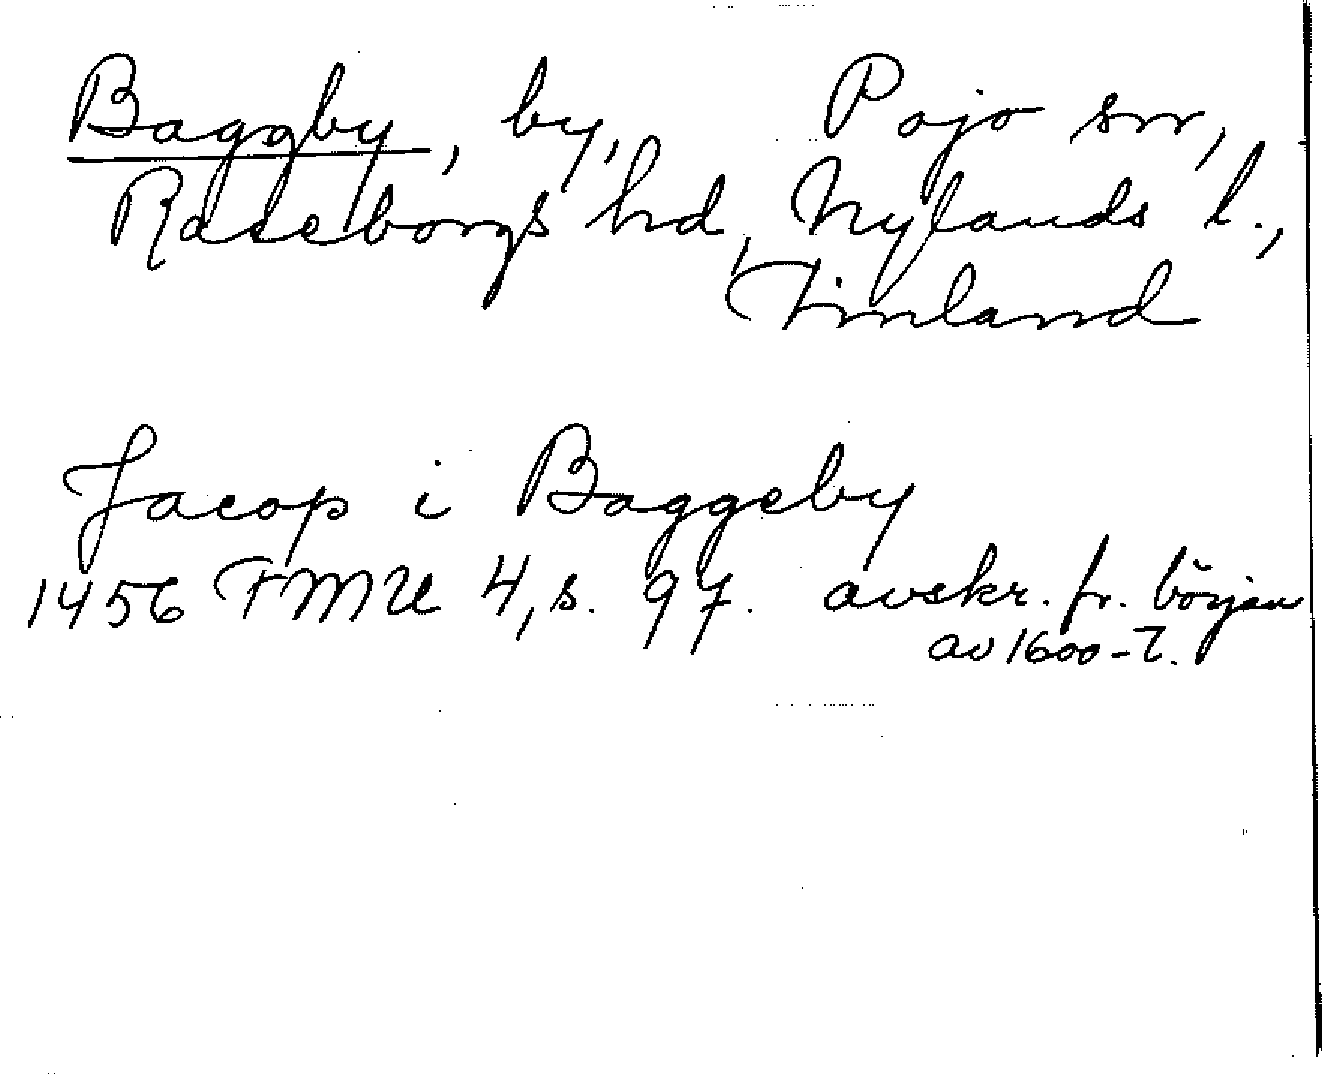 Baggby, by, Pojo sn,
Raseborgs hd, Nylands l.,
Finland
Jacop i Baggeby
1456 FMU 4, s. 97. avskr. fr. början
av 1600-t.